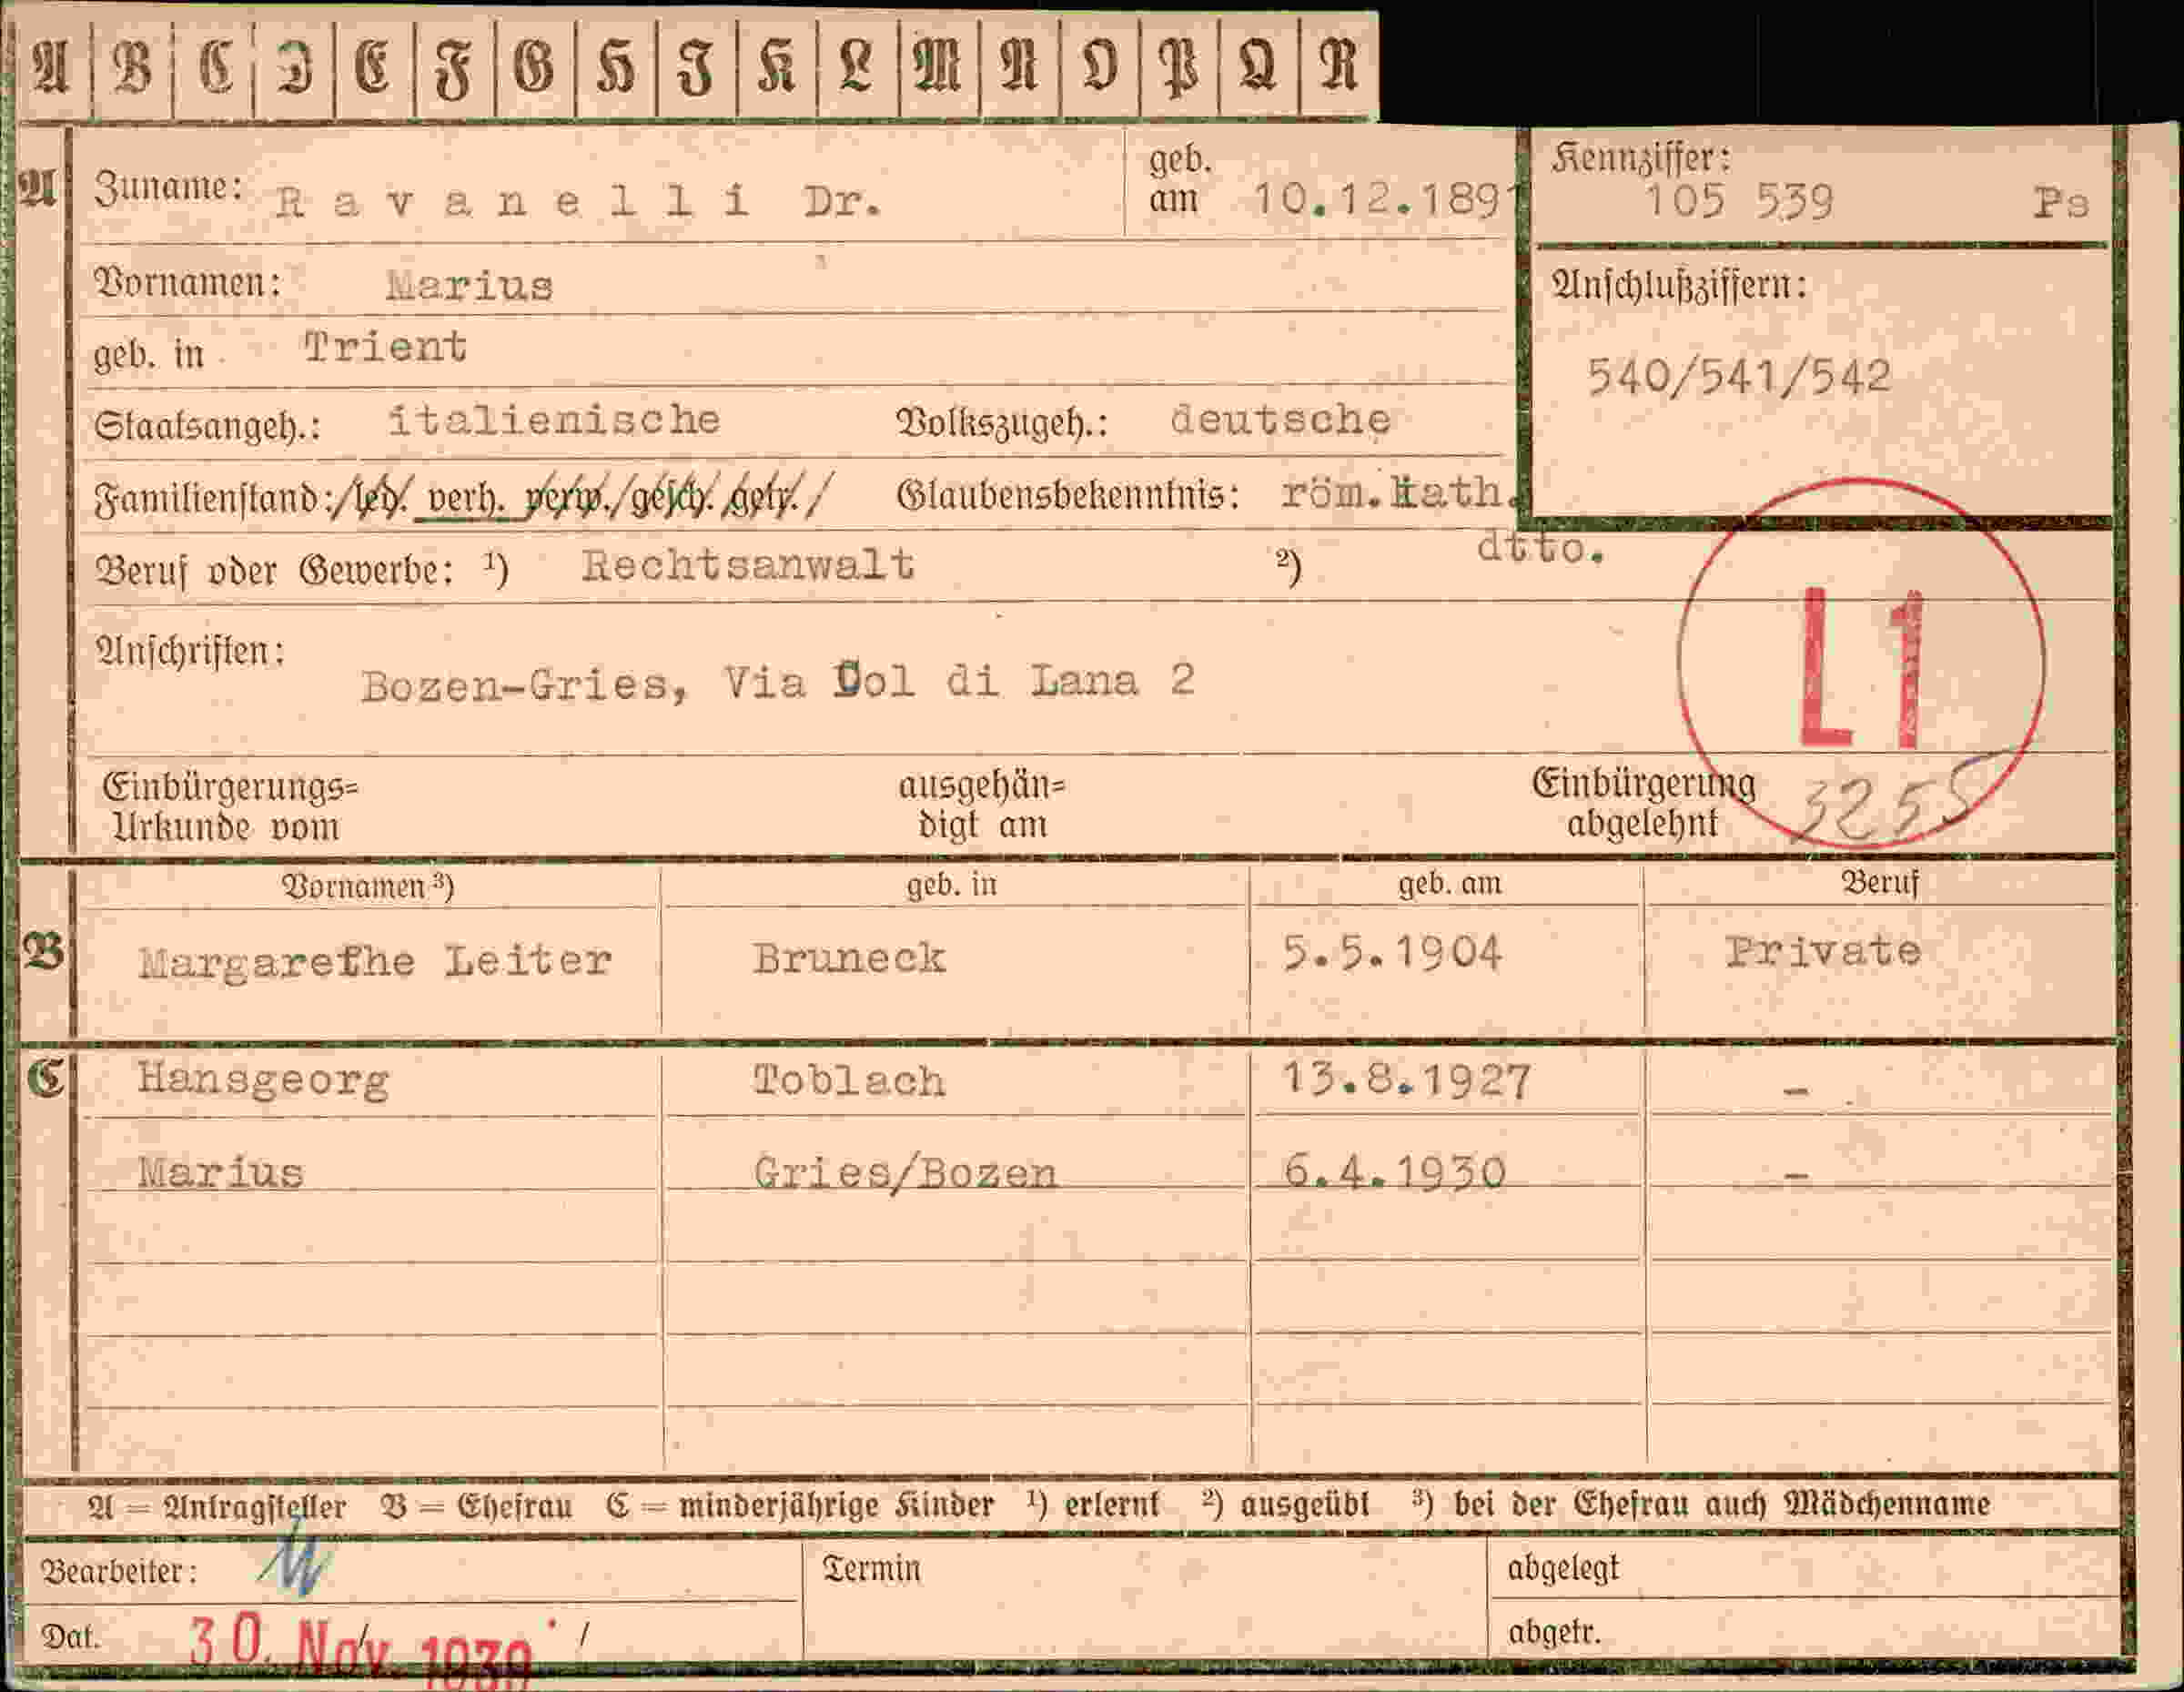 A B C D E F G H I K L M N O P Q R
A Zuname: Ravanelli Dr. geb. am 10.12.1891
Kennziffer: 105 539 Ps
Vornamen: Marius
Anschlußziffern:
geb. in Trient
540/541/542
Staatsangeh.: italienische Volkszugeh.: deutsche
Familienstand: /led. verh. verw./gesch. getr./ Glaubensbekenntnis: röm.kath.
Beruf oder Gewerbe: 1) Rechtsanwalt 2) dtto.
L1
Anschriften:
Bozen-Gries, Via Col di Lana 2
Einbürgerungs=
Urkunde vom
ausgehän=
digt am
Einbürgerung
abgelehnt
3255
Vornamen 3) geb. in geb. am Beruf
B Margarethe Leiter Bruneck 5.5.1904 Private
C Hansgeorg Toblach 13.8.1927 -
Marius Gries/Bozen 6.4.1930 -
A = Antragsteller B = Ehefrau C = minderjährige Kinder 1) erlernt 2) ausgeübt 3) bei der Ehefrau auch Mädchenname
Bearbeiter: Termin abgelegt
Dat. 30. Nov. 1939 abgetr.